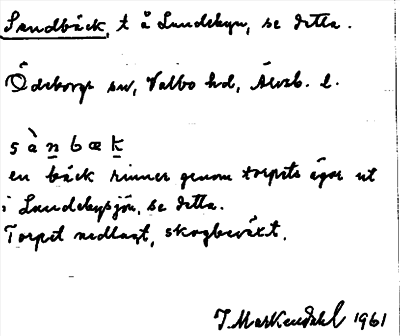 Sandbäck, t å Lundebyn, se detta.
Ödeborgs sn, Valbo hd, Älvsb. l.
s à n b æ k
en bäck rinner genom torpets ägor ut
i Lundebysjön, se detta.
Torpet nedlagt, skogbeväxt.
J. Markendahl 1961